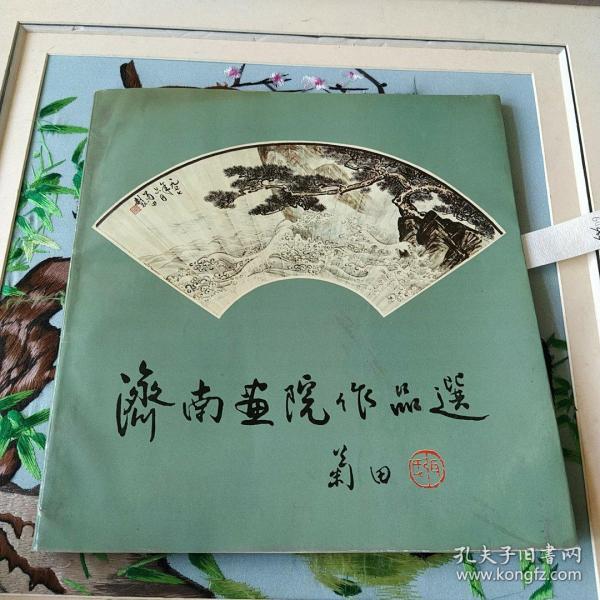 濟南畫院作品選
菊田
孔夫子旧書网
www.kongfz.com